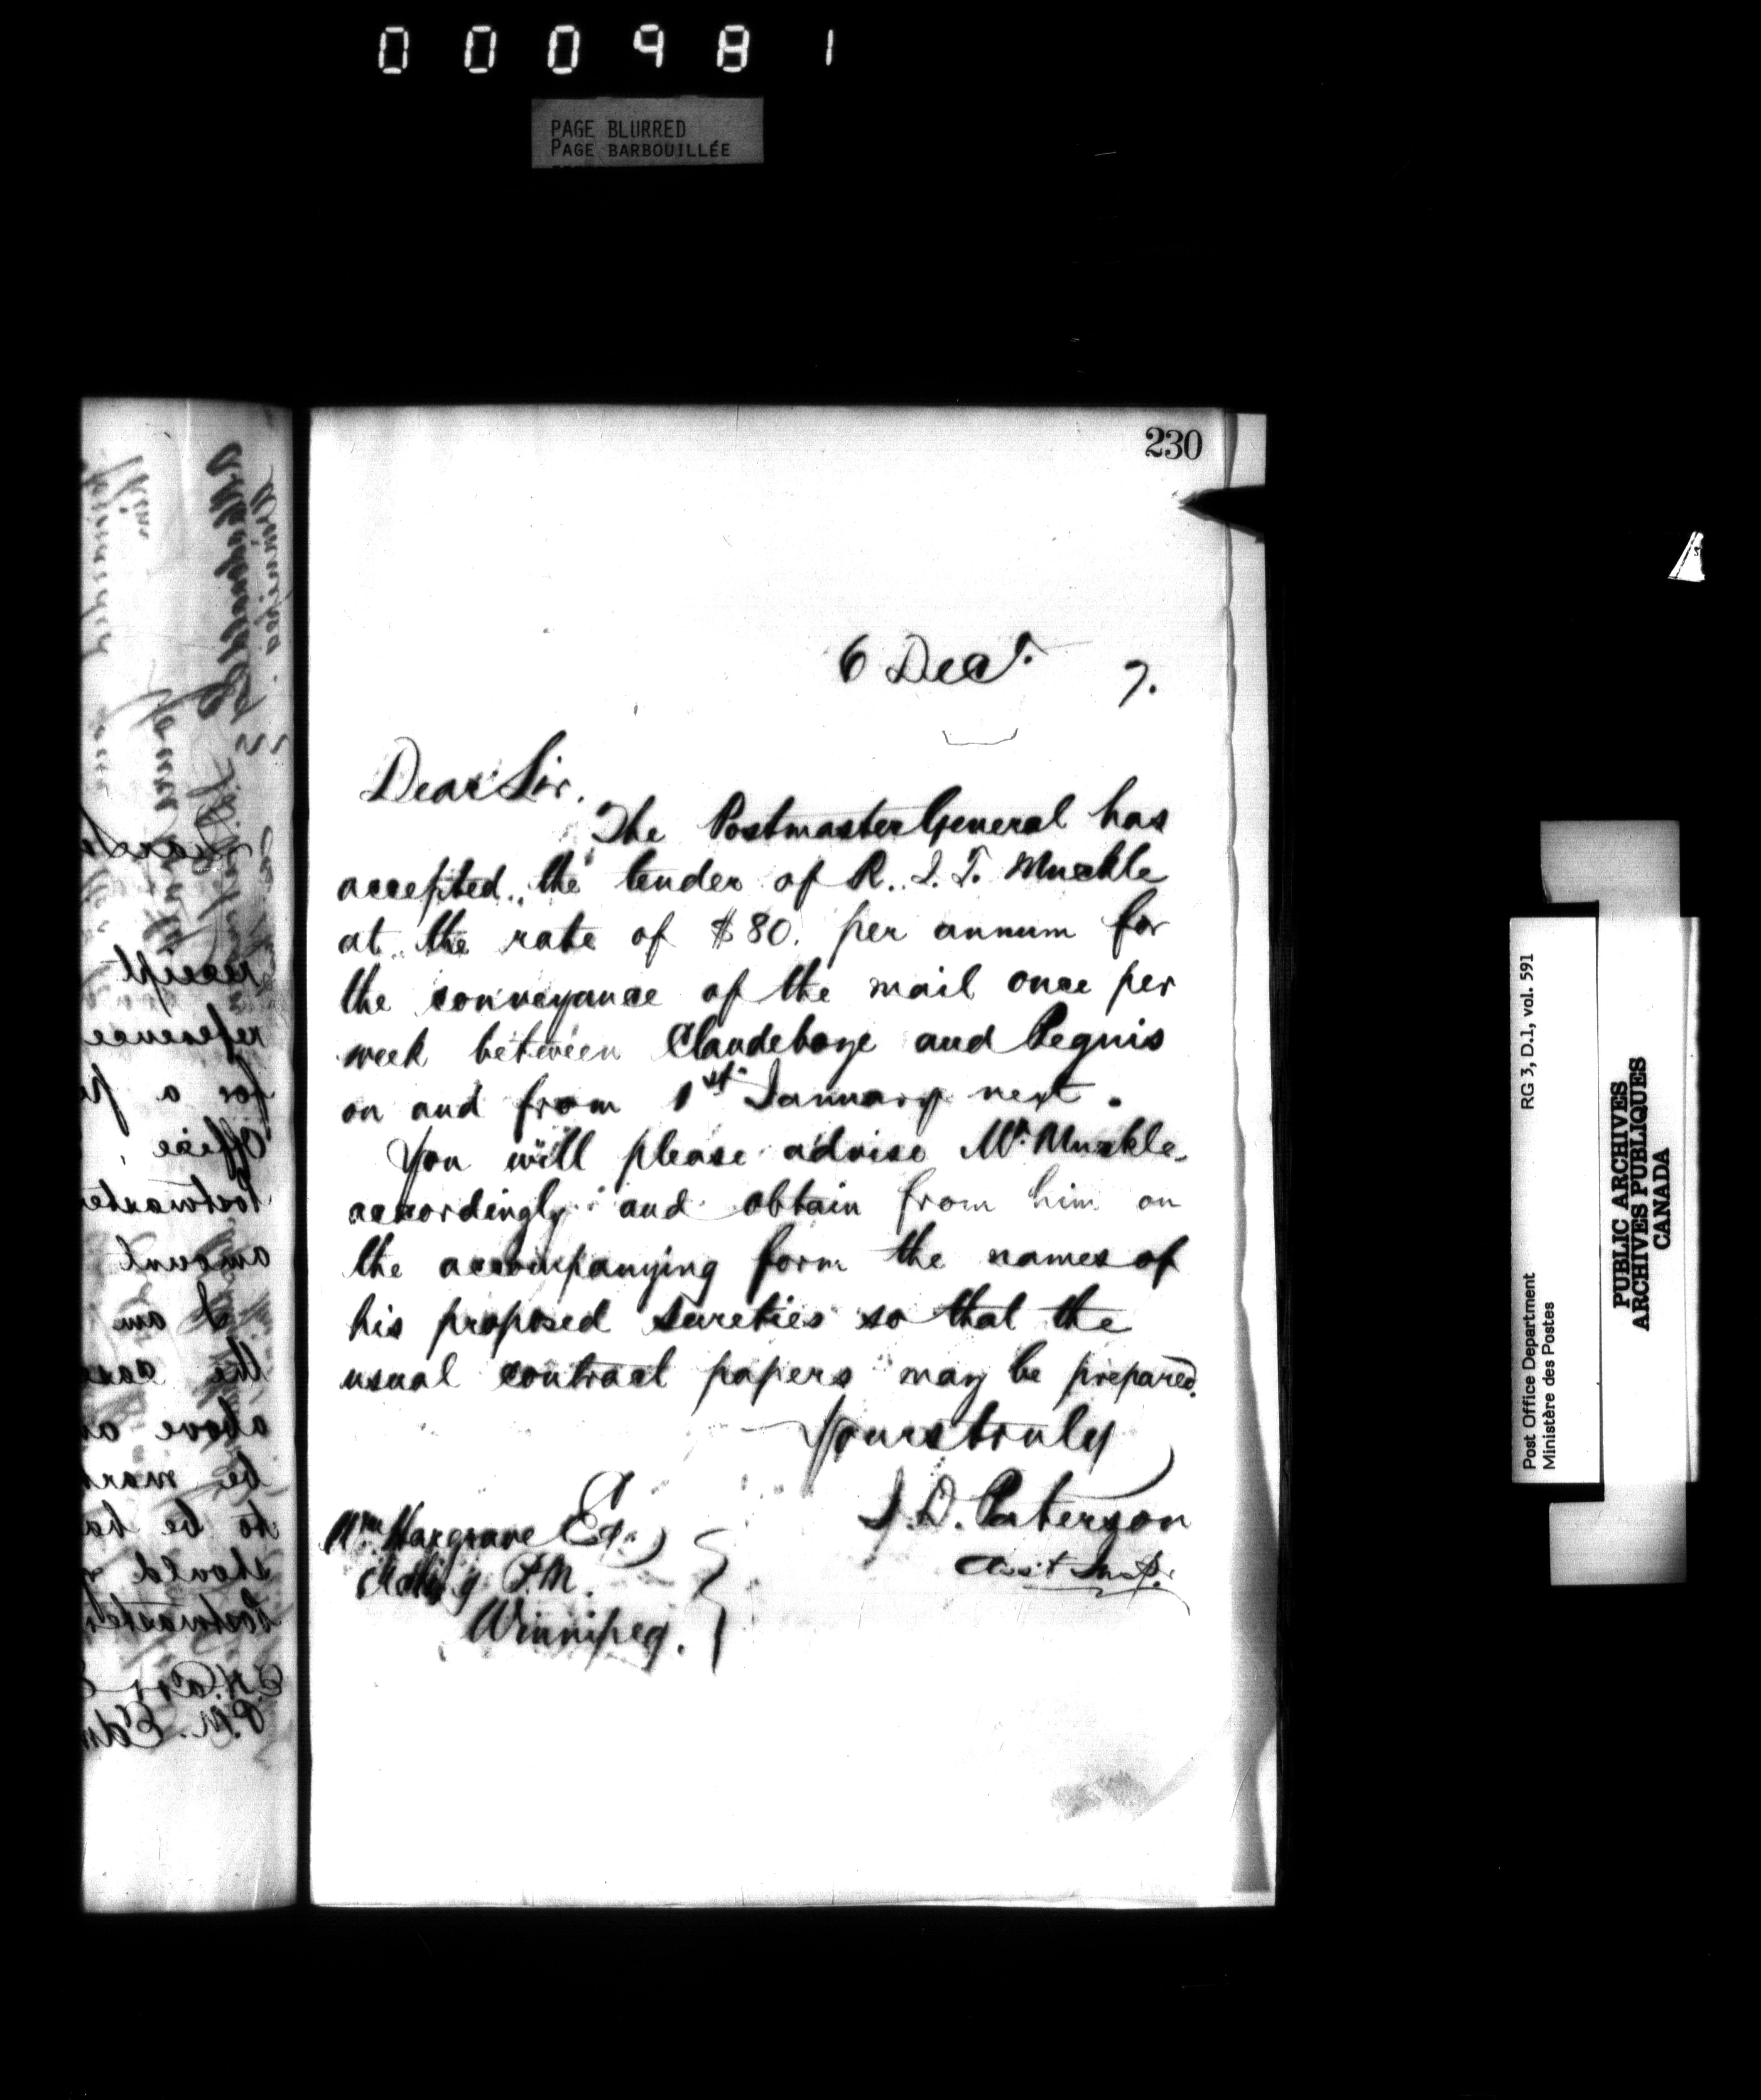 000981
PAGE BLURRED
PAGE BARBOUILLÉE
230
6 Decr. 7.
Dear Sir.
The Postmaster General has
accepted the tender of R. J. T. Muckle
at the rate of $80. per annum for
the conveyance of the mail once per
week between Clandeboye and Peguis
on and from 1st January next.
You will please advise Mr. Muckle
accordingly and obtain from him on
the accompanying form the names of
his proposed sureties so that the
usual contract papers may be prepared.
Yours truly
J. D. Paterson
Asst Insp.
Wm Hargrave Esq.
Acting P.M.
Winnipeg.
receipt
reference
for a
Office
Postmaster
amount
I am
the case
above
be
to be
should
Postmaster
P.M.
Post Office Department RG 3, D.1, vol. 591
Ministère des Postes
PUBLIC ARCHIVES
ARCHIVES PUBLIQUES
CANADA